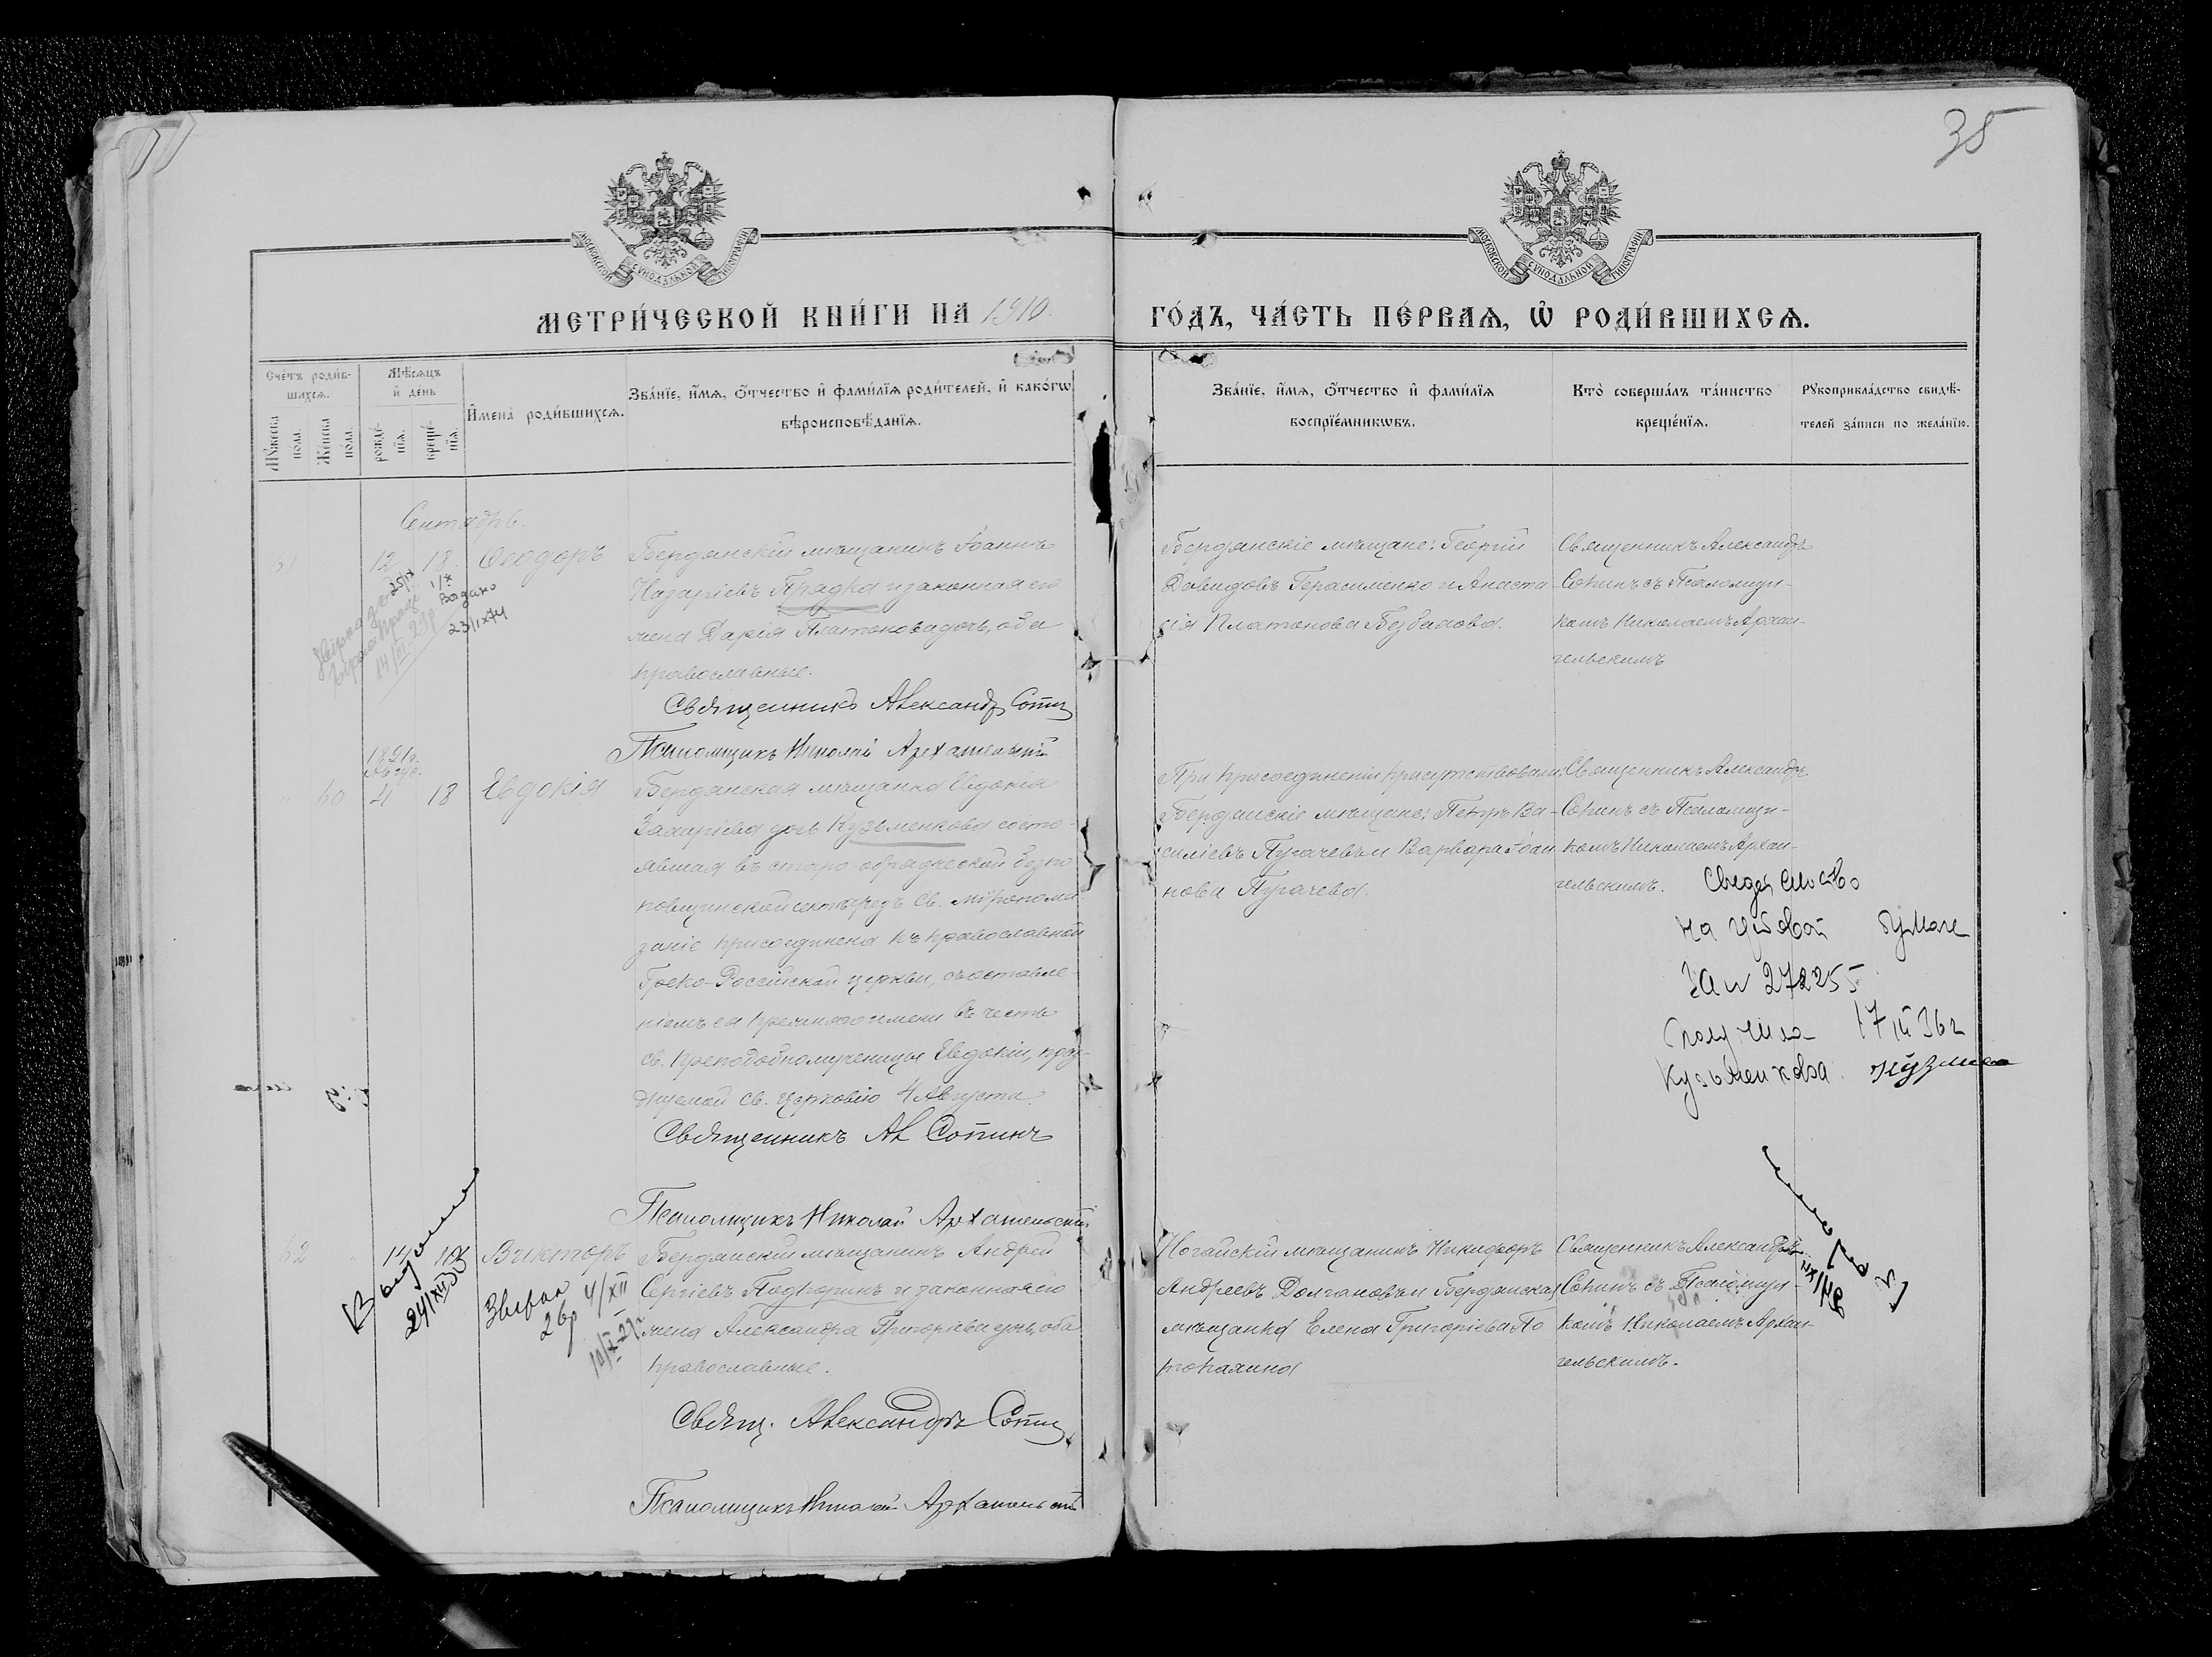 35
МОСКОВСКОЙ СѴНОДАЛЬНОЙ ТИПОГРАФІИ
МОСКОВСКОЙ СѴНОДАЛЬНОЙ ТИПОГРАФІИ
МЕТРИ́ЧЕСКОЙ КНИ́ГИ НА 1910
ГО́ДЪ, ЧА́СТЬ ПЕ́РВАѦ, Ѡ҆ РОДИ́ВШИХСѦ.
Сче́тъ роди́в-
шихсѧ.
Мѣ́сѧцъ
и҆ де́нь
Мꙋ́жеска
пола.
Же́нска
по́ла.
рожде́-
нїѧ.
креще́-
нїѧ.
И҆мена̀ роди́вшихсѧ.
Зва́нїе, и҆́мѧ, ѻ҆́тчество и҆ фами́лїѧ роди́телей, и҆ како́гѡ
вѣроисповѣ́данїѧ.
Зва́нїе, и҆́мѧ, ѻ҆́тчество и҆ фами́лїѧ
воспрїе́мникѡвъ.
Кто̀ соверша́лъ та́инство
креще́нїѧ.
Рꙋкоприкла́дство свидѣ́-
телей за́писи по жела́нїю.
Сентябрь.
61 12 18 Ѳеодоръ
Бердянскій мѣщанинъ Іоаннъ
Назаріевъ Прадка и законная его
жена Дарія Платонова дочь, оба
православные.
Священникъ Александръ Сопинъ
Псаломщикъ Николай Архангельскій
Бердянскіе мѣщане: Георгій
Давидовъ Герасименко и Анаста-
сія Платонова Безбалова.
Священникъ Александръ
Сопинъ съ Псаломщи-
комъ Николаемъ Архан-
гельскимъ
25/IX 1/X
Видано
14/XI-29р 23/IX 74
1891г.
Авгус.
" 60 4 18 Евдокія
Бердянская мѣщанка Евдокія
Захаріева дочь Кузьменкова состо-
явшая въ старо-обрядческой безпо-
повщинской сектѣ чрезъ Св. мѵропома-
заніе присоединена къ православной
Греко-Россійской церкви, съ оставле-
ніемъ ея прежняго имени въ честь
св. преподобномученицы Евдокіи, празд-
днуемой св. церковію 4 Августа.
Священникъ Ал Сопинъ
Псаломщикъ Николай Архангельскій
При присоединеніи присутствовали:
Бердянскіе мѣщане: Петръ Ва-
силіевъ Пугачевъ и Варвара Іоан-
нова Пугачева.
Священникъ Александръ
Сопинъ съ Псаломщи-
комъ Николаемъ Архан-
гельскимъ.
на гербовой бумаге
За № 272255
получила 17 III 36г
Кузьменкова
62 " 14 18 Викторъ
Бердянскій мѣщанинъ Андрей
Сергіевъ Подпоринъ и законная его
жена Александра Григоріева дочь, оба
православные.
Свящ. Александръ Сопинъ
Псаломщикъ Николай Архангельскій
Ногайскій мѣщанинъ Никифоръ
Андреевъ Долгановъ и Бердянская
мѣщанка Елена Григоріева По-
топахина
Священникъ Александръ
Сопинъ съ Псаломщи-
комъ Николаемъ Архан-
гельскимъ.
26р 4/XII
10/X-29г